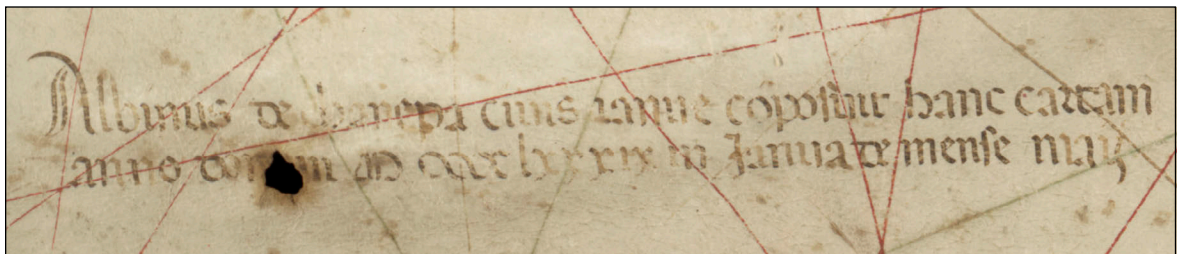 Albinus de chanepa ciuis ianue cōposuit hanc cartam
anno domini M cccc lxxxix in Janua de mense maij